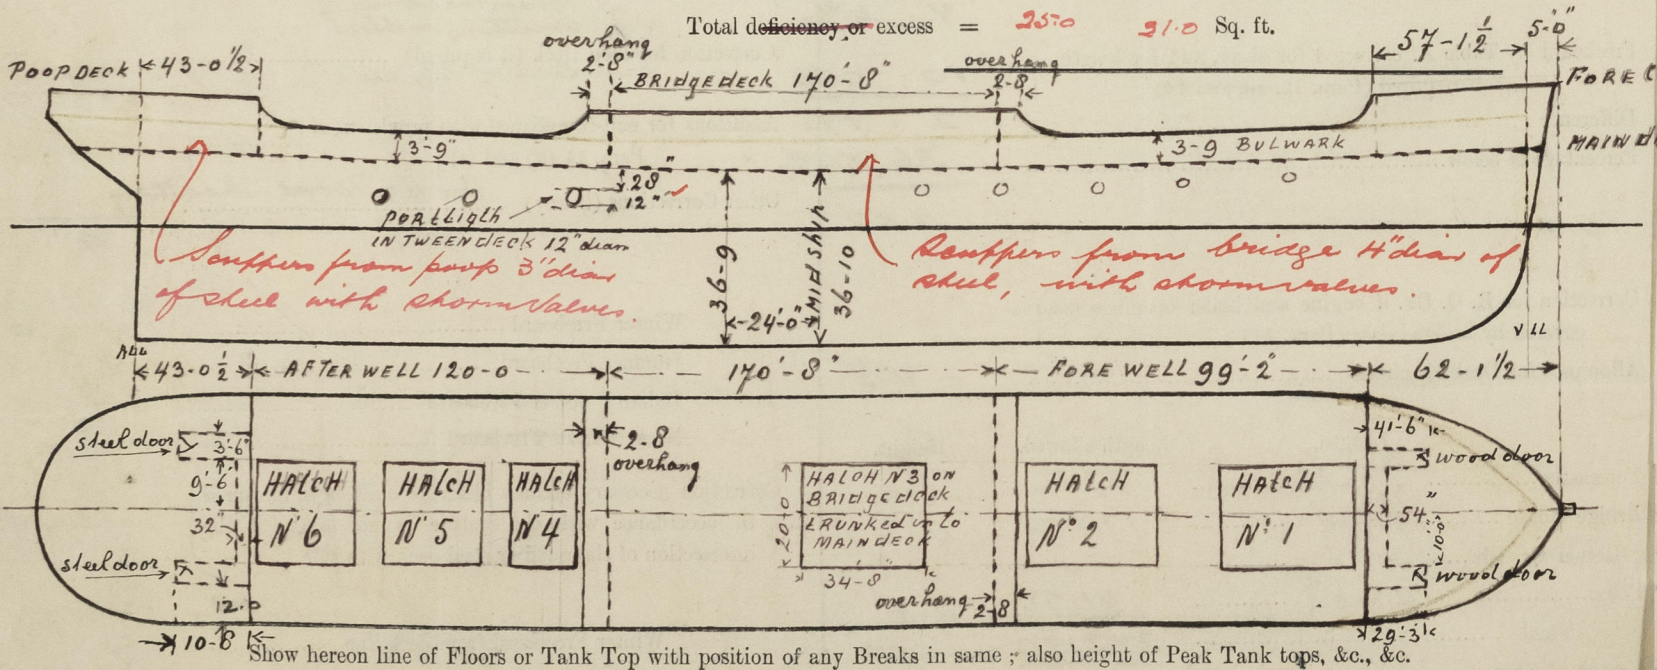 Total deficiency or excess = 25.0 21.0 Sq. ft.
overhang
2'-8"
overhang
2-8
57-1½
5'-0"
POOP DECK 43-0½
BRIDGEDECK 170'-8"
FORE C
3-9"
3-9 BULWARK
MAIN d
28"
12"
PORTLIGTH
IN TWEENDECK 12" diam
Scuppers from poop 3" diar
of steel with stormvalves.
Scuppers from bridge 4" diar of
steel, with stormvalves.
36-9
24'-0"
MIDSHIP
36-10
43-0½
AFTER WELL 120-0
170'-8"
FORE WELL 99'-2"
62-1½
steel door
3'-6"
9'-6"
32"
steel door
12.0
10-8
HATCH
Nº 6
HATCH
Nº 5
HATCH
Nº 4
2-8
overhang
20-0
HATCH Nº 3 ON
BRIDGEDECK
TRUNKED INTO
MAINDECK
34-8"
overhang
2-8
HATCH
Nº 2
HATCH
Nº 1
4'-6"
wood door
54"
10-0
wood door
29'-3"
Show hereon line of Floors or Tank Top with position of any Breaks in same ; also height of Peak Tank tops, &c., &c.